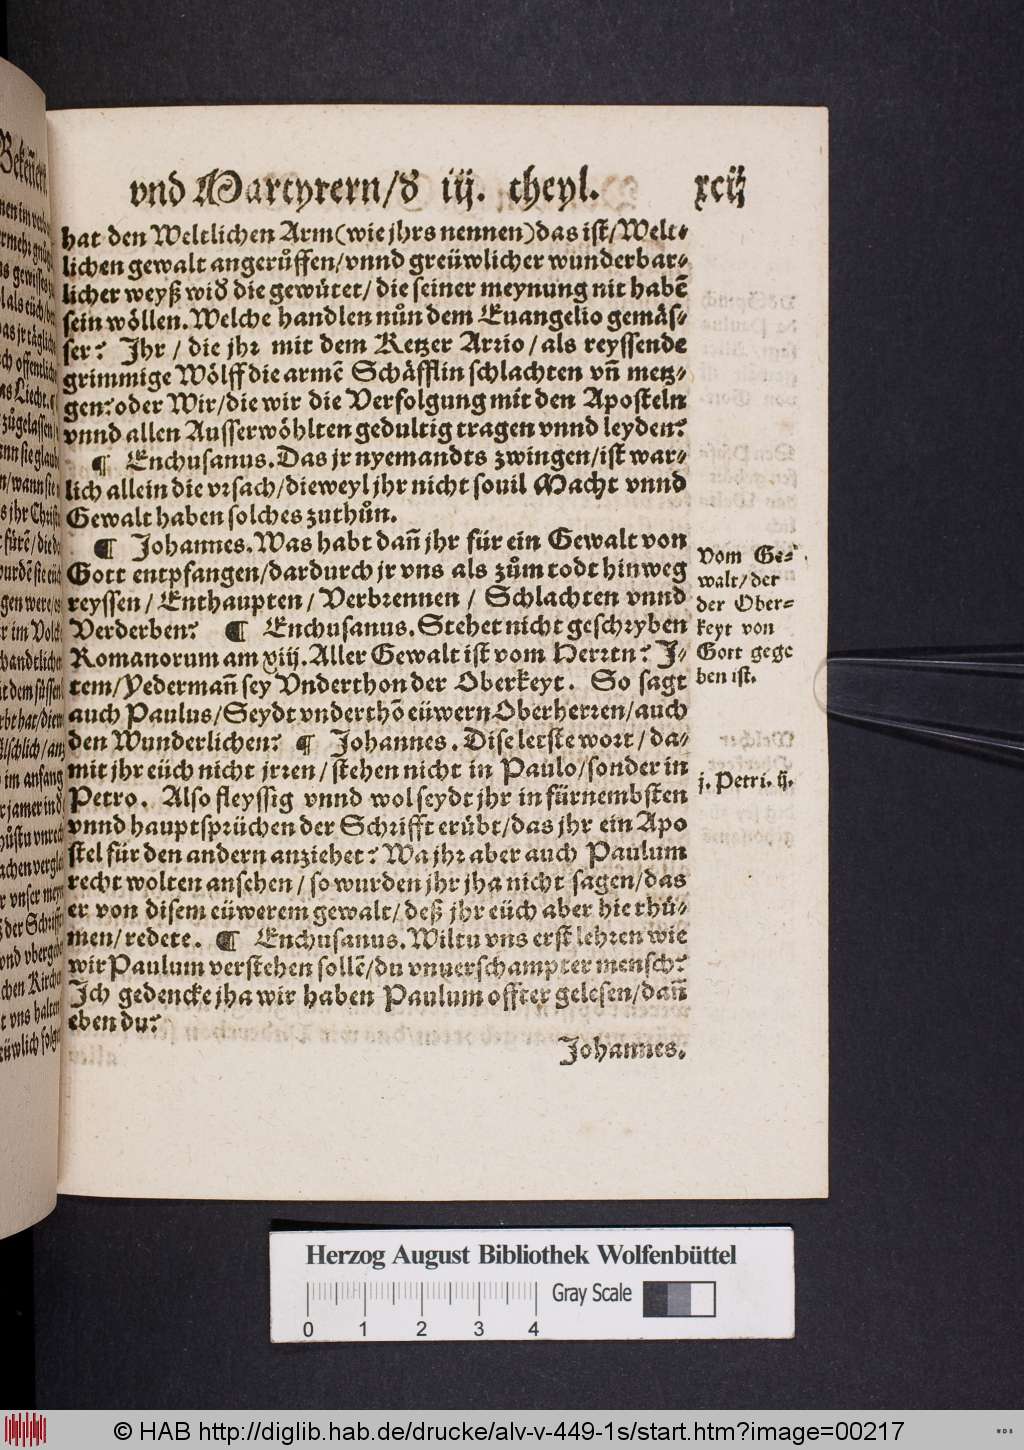 vnd Martyrern/ď iij. theyl. xcij
hat den Weltlichen Arm (wie jhrs nennen) das ist/Welt-
lichen gewalt angerůffen/vnnd greüwlicher wunderbar-
licher weyß wiď die gewütet/ die seiner meynung nit habẽ
sein wöllen. Welche handlen nůn dem Euangelio gemäs-
ser? Jhr / die jhr mit dem Ketzer Arrio/als reyssende
grimmige Wölff die armẽ Schäfflin schlachten vñ metz-
gen? oder Wir/die wir die Verfolgung mit den Aposteln
vnnd allen Ausserwöhlten gedultig tragen vnnd leyden?
¶ Enchusanus. Das jr nyemandts zwingen/ist war-
lich allein die vrsach/dieweyl jhr nicht souil Macht vnnd
Gewalt haben solches zuthůn.
¶ Johannes. Was habt dañ jhr für ein Gewalt von
Gott entpfangen/dardurch jr vns als zům todt hinweg
reyssen / Enthaupten / Verbrennen / Schlachten vnnd
Verderben? ¶ Enchusanus. Stehet nicht geschryben
Romanorum am xiij. Aller Gewalt ist vom Herrtn? J-
tem/Yedermañ sey Vnderthon der Oberkeyt. So sagt
auch Paulus/Seydt vnderthõ eüwern Oberherren/auch
den Wunderlichen? ¶ Johannes. Dise letste wort / da-
mit jhr eüch nicht jrren / stehen nicht in Paulo/sonder in
Petro. Also fleyssig vnnd wol seydt jhr in fürnembsten
vnnd hauptsprüchen der Schrifft erübt/das jhr ein Apo
stel für den andern anziehet? Wa jhr aber auch Paulum
recht wolten ansehen / so wurden jhr jha nicht sagen/das
er von disem eüwerem gewalt/ deß jhr eüch aber hie rhü-
men/redete. ¶ Enchusanus. Wiltu vns erst lehren wie
wir Paulum verstehen sollẽ/du vnuerschampter mensch?
Jch gedencke jha wir haben Paulum offter gelesen/dañ
eben du?
Johannes.
Vom Ge-
walt/ der
der Ober-
keyt von
Gott gege
ben ist.
j. Petri. ij.
Herzog August Bibliothek Wolfenbüttel
Gray Scale
0 1 2 3 4
© HAB http://diglib.hab.de/drucke/alv-v-449-1s/start.htm?image=00217